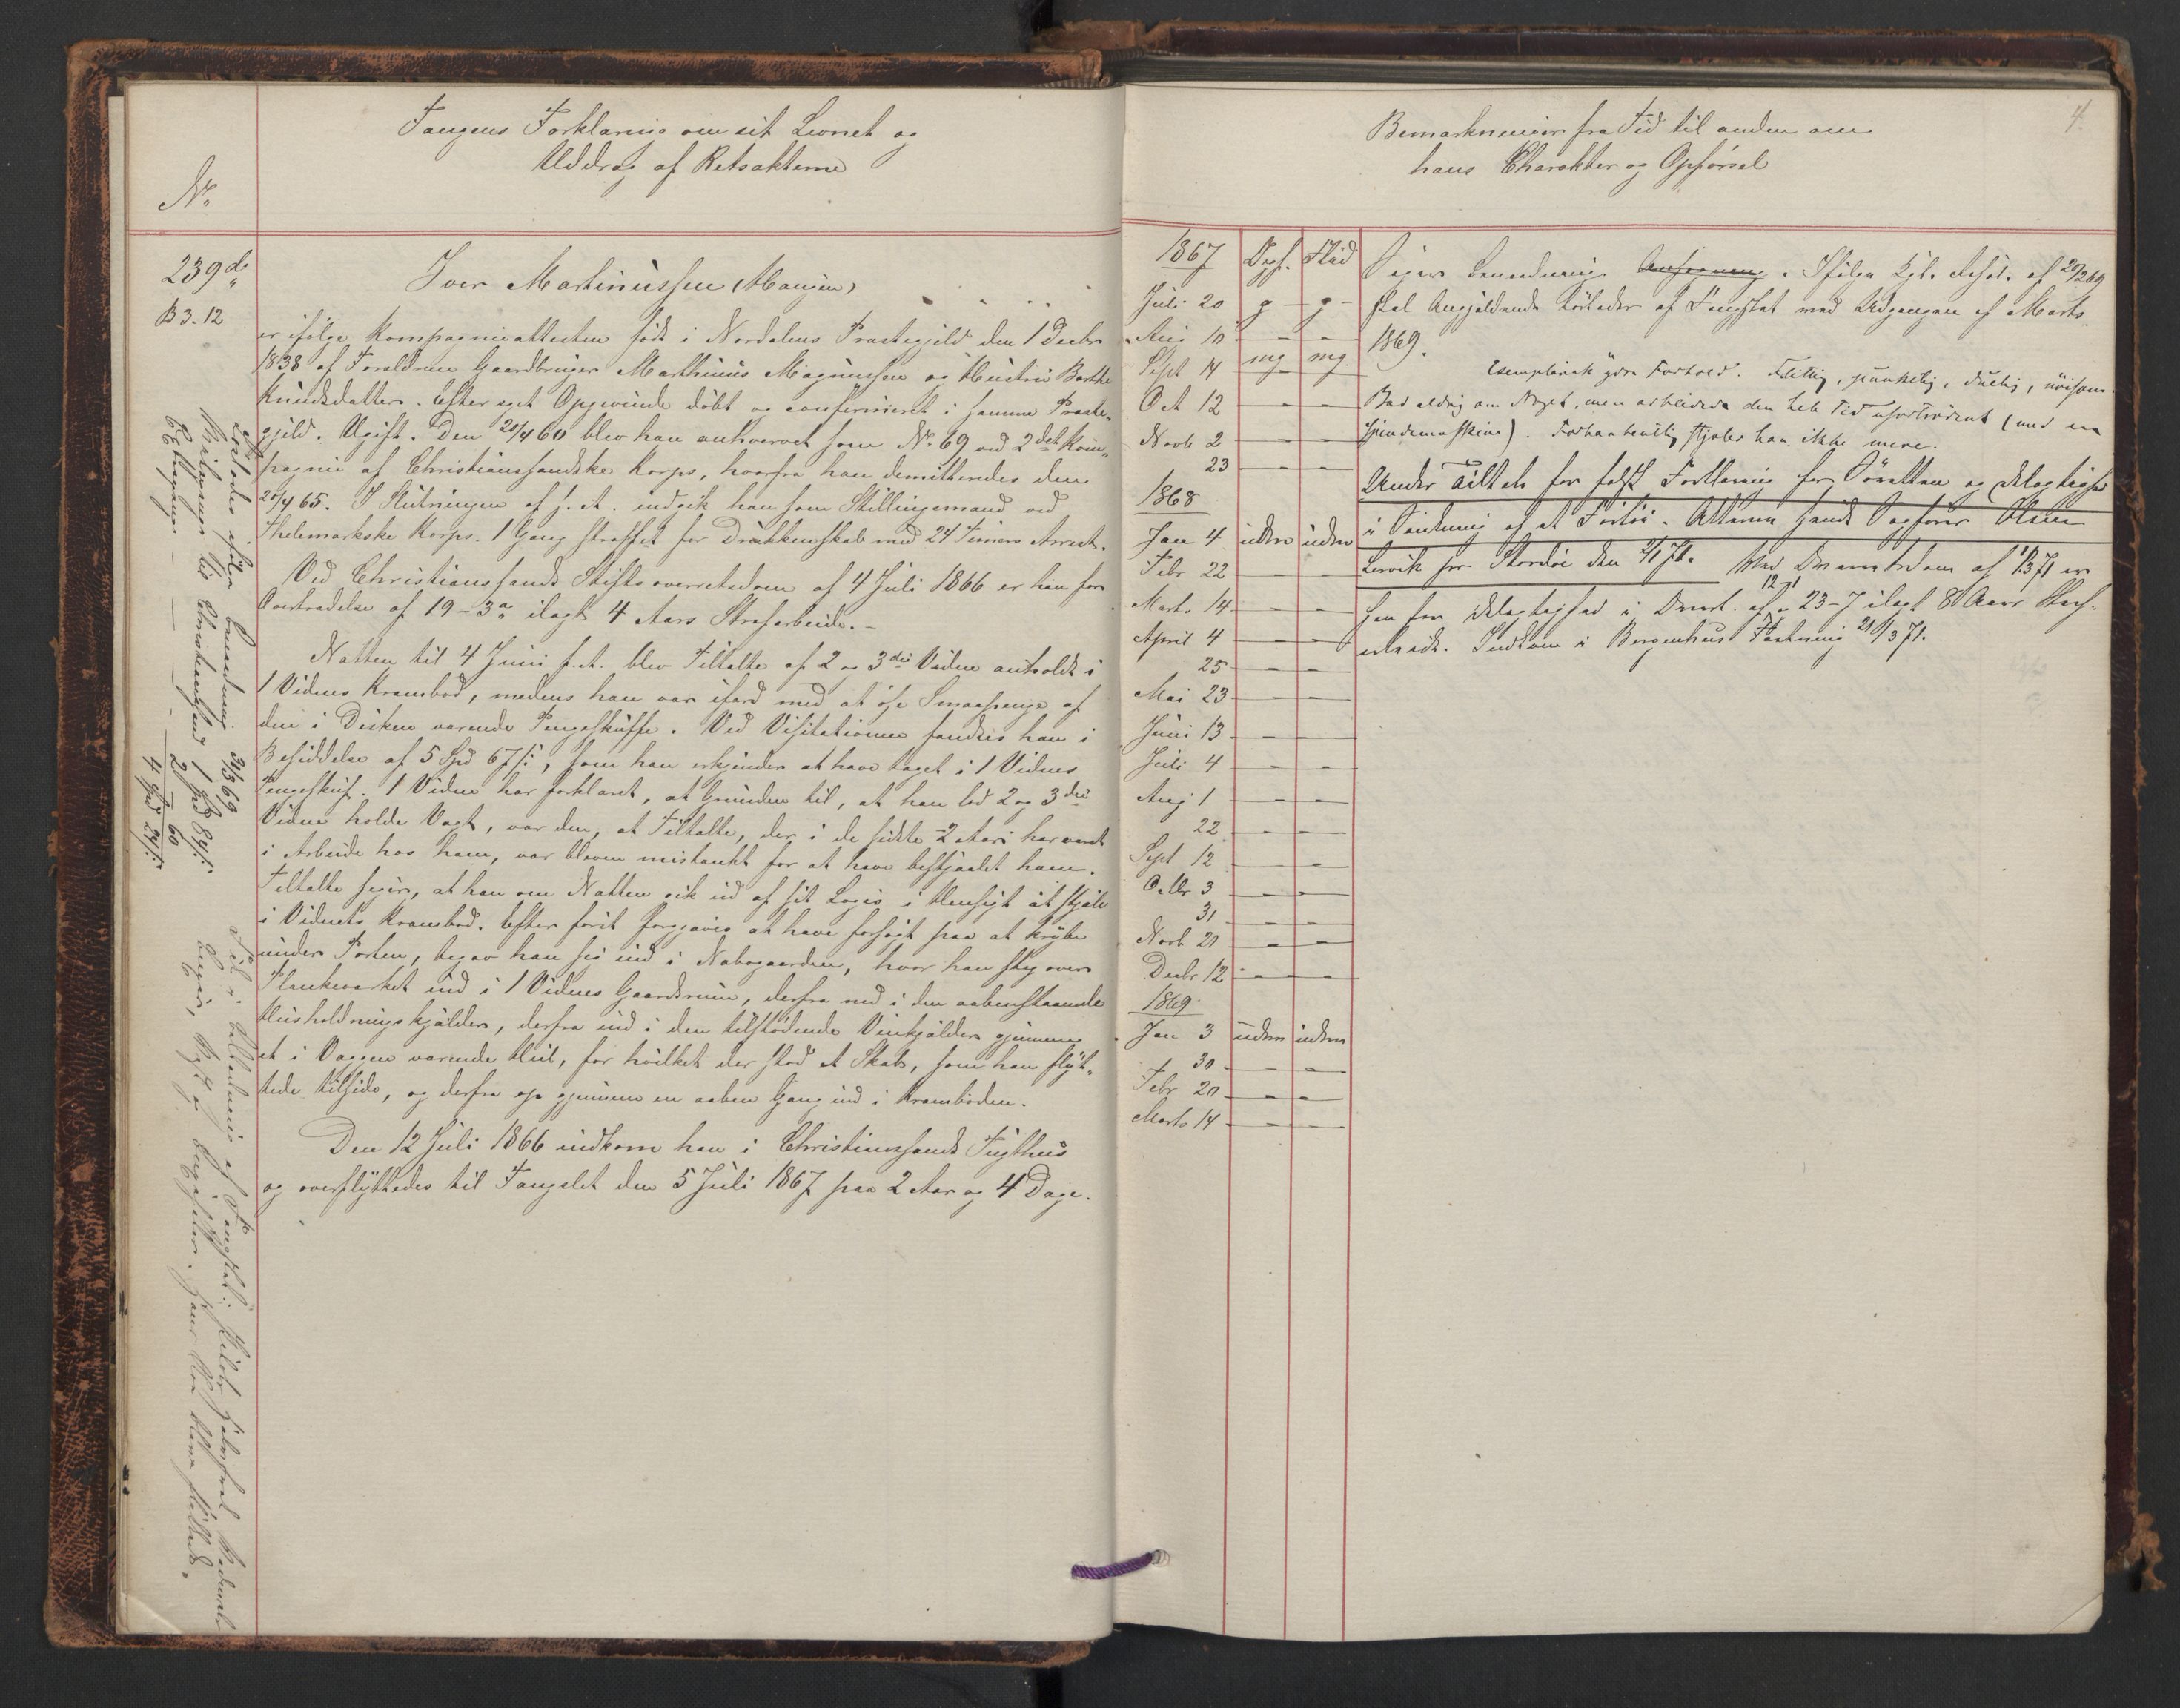 Fangens Forklaring om sit Levnet og
Uddrag af Retsakterne
No
239 d.
B 3. 12
Iver Martinussen (Maugen)
er ifølge Kompagniattesten født i Nordalens Præstegjeld den 1 Decbr
1838 af Forældrene Gaardbruger Marthinus Magnussen og Hustru Berthe
Knudsdatter. Efter eget Opgivende døbt og confirmeret i samme Præste-
gjeld. Ugift. Den 20/4 60 blev han anhvervet som No 69 ved 2det Kom-
pagnie af Christianssandske Korps, hvorfra han demitteredes den
20/4 65. I Slutningen af s. A. indgik han som Stillingsmand ved
Thelemarkske Korps. 1 Gang straffet for Drukkenskab med 24 Timers Arrest.
Ved Christianssands Stiftsoverretsdom af 4 Juli 1866 er han for
Overtrædelse af 19-3a ilagt 4 Aars Strafarbeide.-
Natten til 4 Juni s. A. blev Tiltalte af 2 og 3die Vidne anholdt i
1 Vidnes Krambod, medens han var ifærd med at øse Smaapenge af
den i Disken værende Pengeskuffe. Ved Visitationen fandtes han i
Besiddelse af 5 Spd 67 s:, som han erkjender at have taget i 1 Vidnes
Pengeskuf. 1 Vidne har forklaret, at Grunden til, at han lod 2 og 3die
Vidne holde Vagt, var den, at Tiltalte, der i de sidste 2 Aar har været
i Arbeide hos ham, var bleven mistænkt for at have bestjaalet ham.
Tiltalte siger, at han om Natten gik ud af sit Logis i Hensigt at stjæle
i Vidnets Krambod. Efter først forgjæves at have forsøgt paa at krybe
under Porten, begav han sig ind i Nabogaarden, hvor han steg over
Plankeværket ind i 1 Vidnes Gaardsrum, derfra ned i den aabenstaaende
Husholdningskjælder, derfra ind i den tilstødende Vinkjælder gjennem
et i Væggen værende Hul, for hvilket der stod et Skab, som han flyt-
tede tilside, og derfra op gjennem en aaben Gang ind i Kramboden.
Den 12 Juli 1866 indkom han i Christianssands Tugthus
og overflyttedes til Fængslet den 5 Juli 1867 paa 2 Aar og 4 Dage.
Løslodes ifølge Benaadning 31/3 69
Christianssand 1 Spd 84 s:
2 " 60
4 Spd 24 s:
Bemærkninger fra Tid til anden om
hans Charakter og Opførsel
4.
1867 Opf. Flid
Juli 20 g g
Aug 10 - -
Sept 14 mg mg
Oct 12 - -
Novb 2 - -
23 - -
1868
Jan 4 udm udm
Febr 22 - -
Marts 14 - -
April 4 - -
25 - -
Mai 23 - -
Juni 13 - -
Juli 4 - -
Aug 1 - -
22 - -
Sept 12 - -
Octbr 3 - -
31 - -
Novb 21 - -
Decbr 12 - -
1869
Jan 3 udm udm
30 - -
Febr 20 - -
Marts 14 - -
Benaadning. Ifølge Kgl. Resol. af 20/2 69
skal Angjældende løslades af Fængslet med Udgangen af Marts
1869.
Exemplarisk ydre Forhold. Flittig, punktlig, duelig, nøisom.
Bad aldrig om Noget, men arbeidede den hele Tid ufortrødent (med en
Spindemaskine). Forhaabentlig stjæler han ikke mere.
Under Tiltale for falsk Forklaring for Søretten og Delagtighed
i Sænkning af et Fartøi.
Lervik paa Stordøen den 71. Ved dom af 3 71 er
han for Delagtighed i af 12-1, 23-7 ilagt 8 Aars Straf-
arbeide. Indkom i Bergenhus Fæstning 21/3 71.